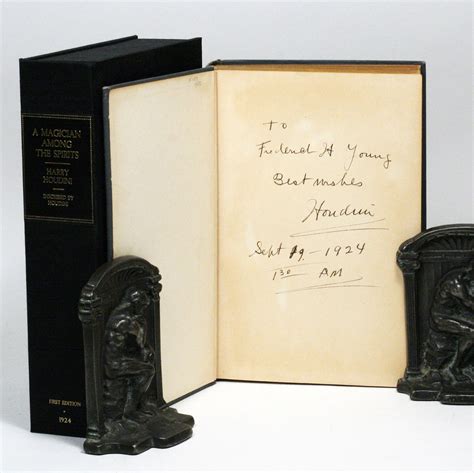 A MAGICIAN
AMONG
THE SPIRITS
HARRY
HOUDINI
INSCRIBED BY
HOUDINI
FIRST EDITION
1924
To
Frederick H Young
Best wishes
Houdini
Sept 19 - 1924
1 30 AM